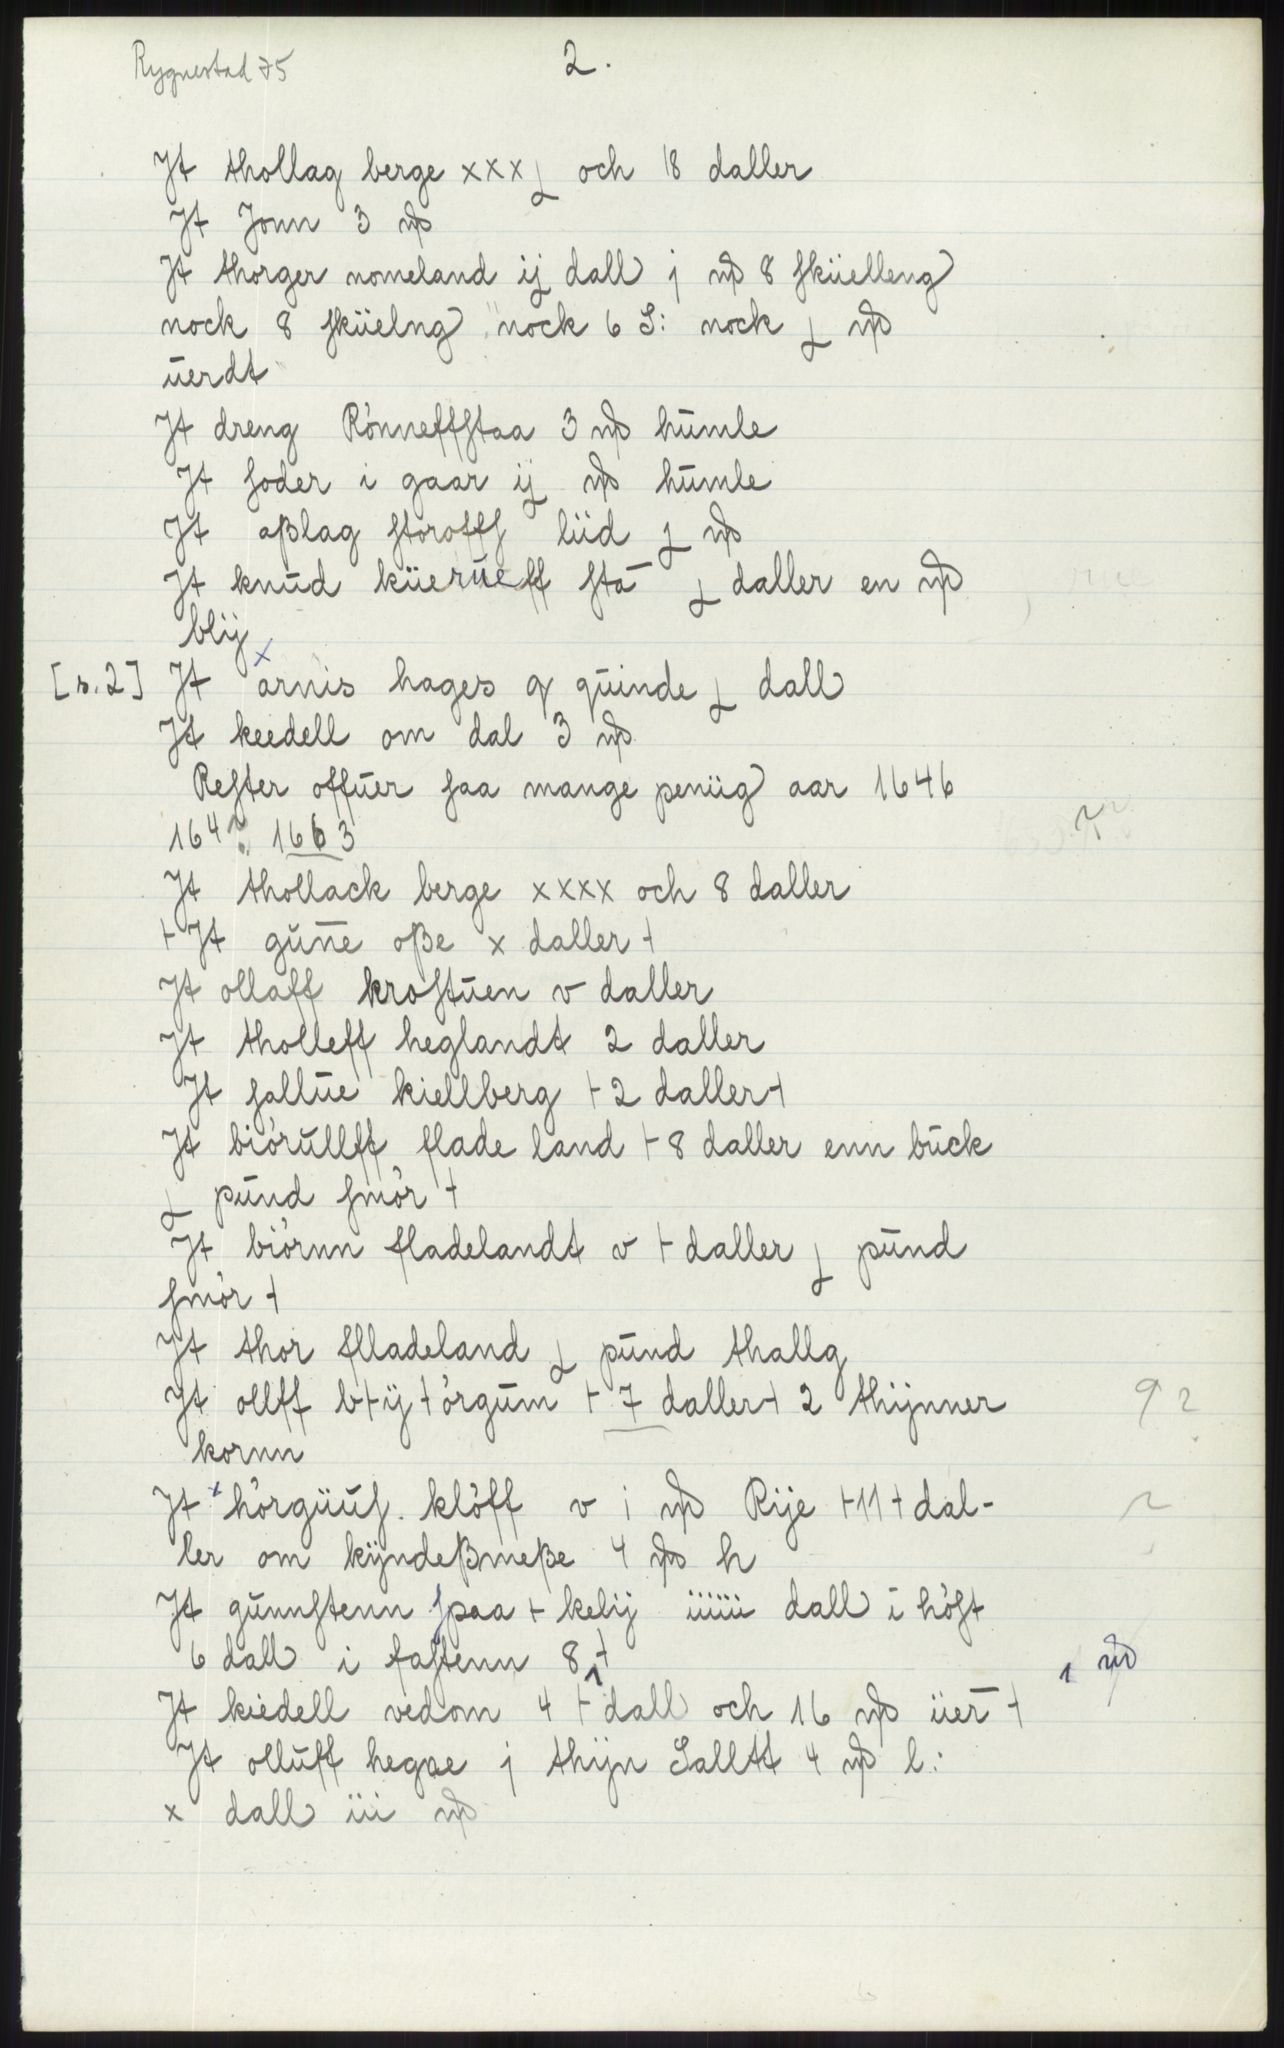 Rygnestad 75
2.
Jt thollag berge xxx j och 18 daller
Jt Jonn 3 ɱ
Jt thorger nomeland ij dall j ɱ 8 sküelleng
nock 8 sküelng nock 6 S: nock j ɱ
ūerdt
Jt dreng Rönneffstaa 3 ɱ hūmle
Jt soder i gaar ij ɱ hūmle
Jt aßlag storoffs liid j ɱ
Jt knūd küerūeff stā j daller en ɱ
blij
[s. 2] Jt x arnis hages qūinde j dall
Jt keedell om dal 3 ɱ
Rester offūer saa mange peniig aar 1646
164 1663
Jt thollack berge xxxx och 8 daller
+ Jt gūn̄e oße x daller +
Jt ollaff krostūen v daller
Jt tholleff heglandt 2 daller
Jt sallūe kiellberg + 2 daller +
Jt biörūllff flade land + 8 daller enn būck
j pūnd smör +
Jt biörnn fladelandt v + daller j pūnd
smör +
Jt thor flladeland j pūnd thallg
Jt ollff b+ij+örgūm + 7 daller + 2 thijnner 9 2
kornn
Jt x hörgüūs. klöff v i ɱ Rije + 11 + dal-
ler om kijndeßmeße 4 ɱ h
Jt gūnnstenn spaa + kelij iiiiii dall i höst
6 dall i fastenn 8 + 1 ɱ
Jt kiedell vedom 4 + dall och 16 ɱ üer +
Jt ollūff hegae j thijn Salltt 4 ɱ l:
x dall iii ɱ